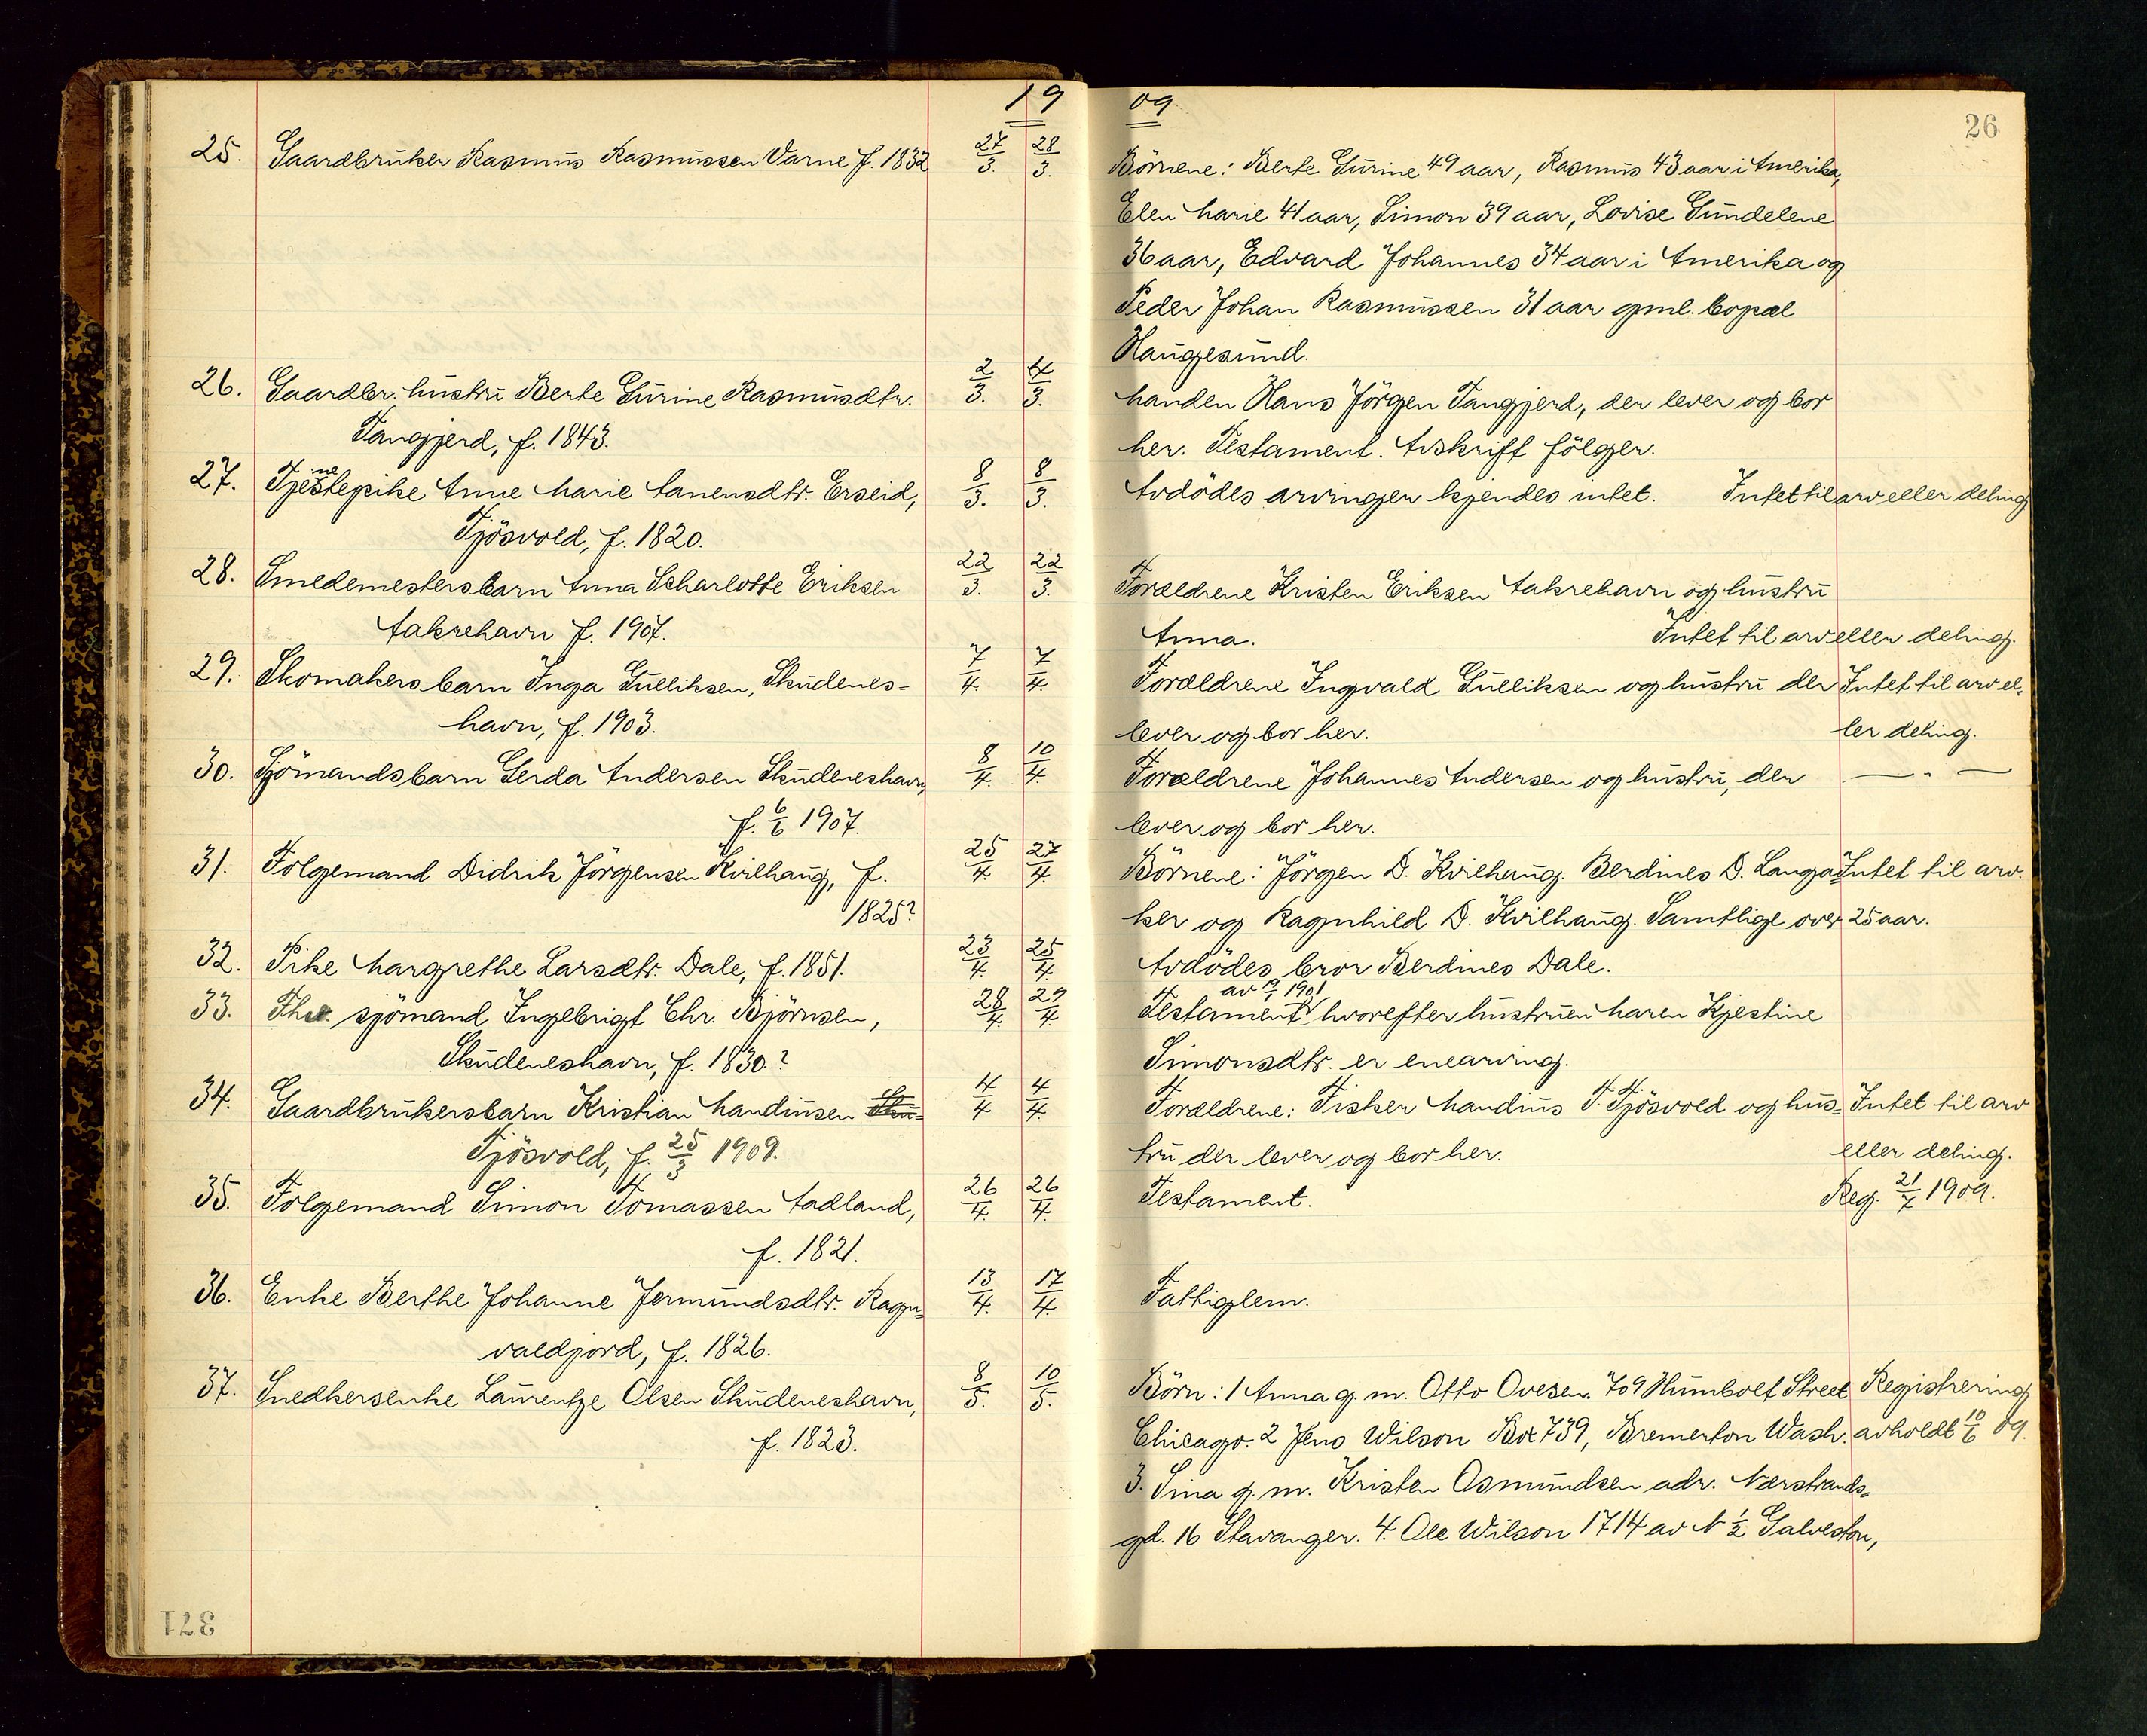 1909
26
25. Gaardbruker Rasmus Rasmussen Varne f. 1832 27/3. 28/3. Börnene: Berte Gurine 49 aar, Rasmus 43 aar i Amerika,
Elen Marie 41 aar, Simon 39 aar, Lovise Gundelene
36 aar, Edvard Johannes 34 aar i Amerika og
Peder Johan Rasmussen 31 aar gml. Bopæl
Haugesund.
26. Gaardbr. hustru Berte Gurine Rasmusdtr. 2/3. 4/3. Manden Hans Jörgen Tangjerd, der lever og bor
Tangjerd, f. 1843. her. Testament. Avskrift fölger.
27. Tjenestepike Anne Marie Aanensdtr. Erseid, 8/3. 8/3. Avdödes arvinger kjendes intet. Intet til arv eller deling
Tjösvold, f. 1820.
28. Smedemestersbarn Anna Scharlotte Eriksen 22/3. 22/3. Forældrene Kristen Eriksen Aakrehavn og hustru
Aakrehavn f. 1907. Anna. Intet til arv eller deling.
29. Skomakersbarn Inga Gulliksen, Skudenes- 7/4. 7/4. Forældrene Ingvald Gulliksen og hustru der Intet til arv el-
havn, f. 1903. lever og bor her. ler deling.
30. Sjömandsbarn Gerda Andersen Skudeneshavn, 8/4. 10/4. Forældrene Johannes Andersen og hustru, der — " —
f. 6/6 1907. lever og bor her.
31. Folgemand Didrik Jörgensen Kvilhaug, f. 25/4. 27/4. Börnene: Jörgen D. Kvilhaug. Berdines D. Langaa- Intet til arv.
1825? ker og Ragnhild D. Kvilhaug. Samtlige over 25 aar.
32. Pike Margrethe Larsdtr. Dale, f. 1851. 23/4. 25/4. Avdödes bror Berdines Dale.
33. Fhv. sjömand Ingebrigt Chr. Björnsen, 28/4. 29/4. Testament av 19/1 1901 hvorefter hustruen Maren Kjestine
Skudeneshavn, f. 1830.? Simonsdtr. er enearving.
34. Gaardbrukersbarn Kristian Mandiusen Sku- 4/4 4/4. Forældrene: Fisker Mandius T. Tjösvold og hus- Intet til arv
Tjösvold, f. 25/3 1909. tru der lever og bor her. eller deling.
35. Folgemand Simon Tomassen Aadland, 26/4. 26/4. Testament. Reg. 21/7 1909.
f. 1821.
36. Enke Berthe Johanne Jermundsdtr. Ragn- 13/4. 17/4. Fattiglem.
valdjord, f. 1826.
37. Snedkersenke Laurentze Olsen Skudeneshavn, 8/5. 10/5. Börn: 1 Anna g. m. Otto Ovesen. 709 Humbolt Street Registrering
f. 1823. Chicago. 2 Jens Wilson Box 739, Bremerton Wash. avholdt 10/6 09.
3. Sina g. m. Kristen Osmundsen adr. Nærstrands-
gd. 16 Stavanger. 4. Ole Wilson 1714 av N 1/2 Galveston,
371